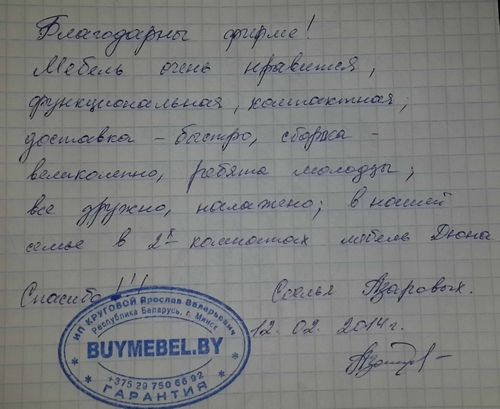 Благодарны фирме!
Мебель очень нравится,
функциональная, компактная;
доставка - быстро, сборка -
великолепно, ребята молодцы;
все дружно, налажено; в нашей
семье в 2х комнатах мебель Дюна
Спасибо!!! Семья Азаровых.
12.02.2014г.
ИП КРУГОВОЙ Ярослав Валерьевич
Республика Беларусь, г. Минск
BUYMEBEL.BY
+375 29 750 66 92
ГАРАНТИЯ